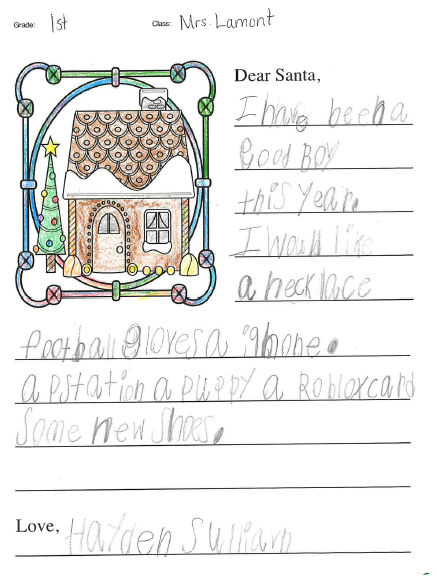 Grade: 1st Class: Mrs. Lamont
Dear Santa,
I have been a
Good Boy
this year.
I would like
a necklace
football gloves a iphone.
a pstation a puppy a Robloxcard
Some new shoes.
Love, Hayden